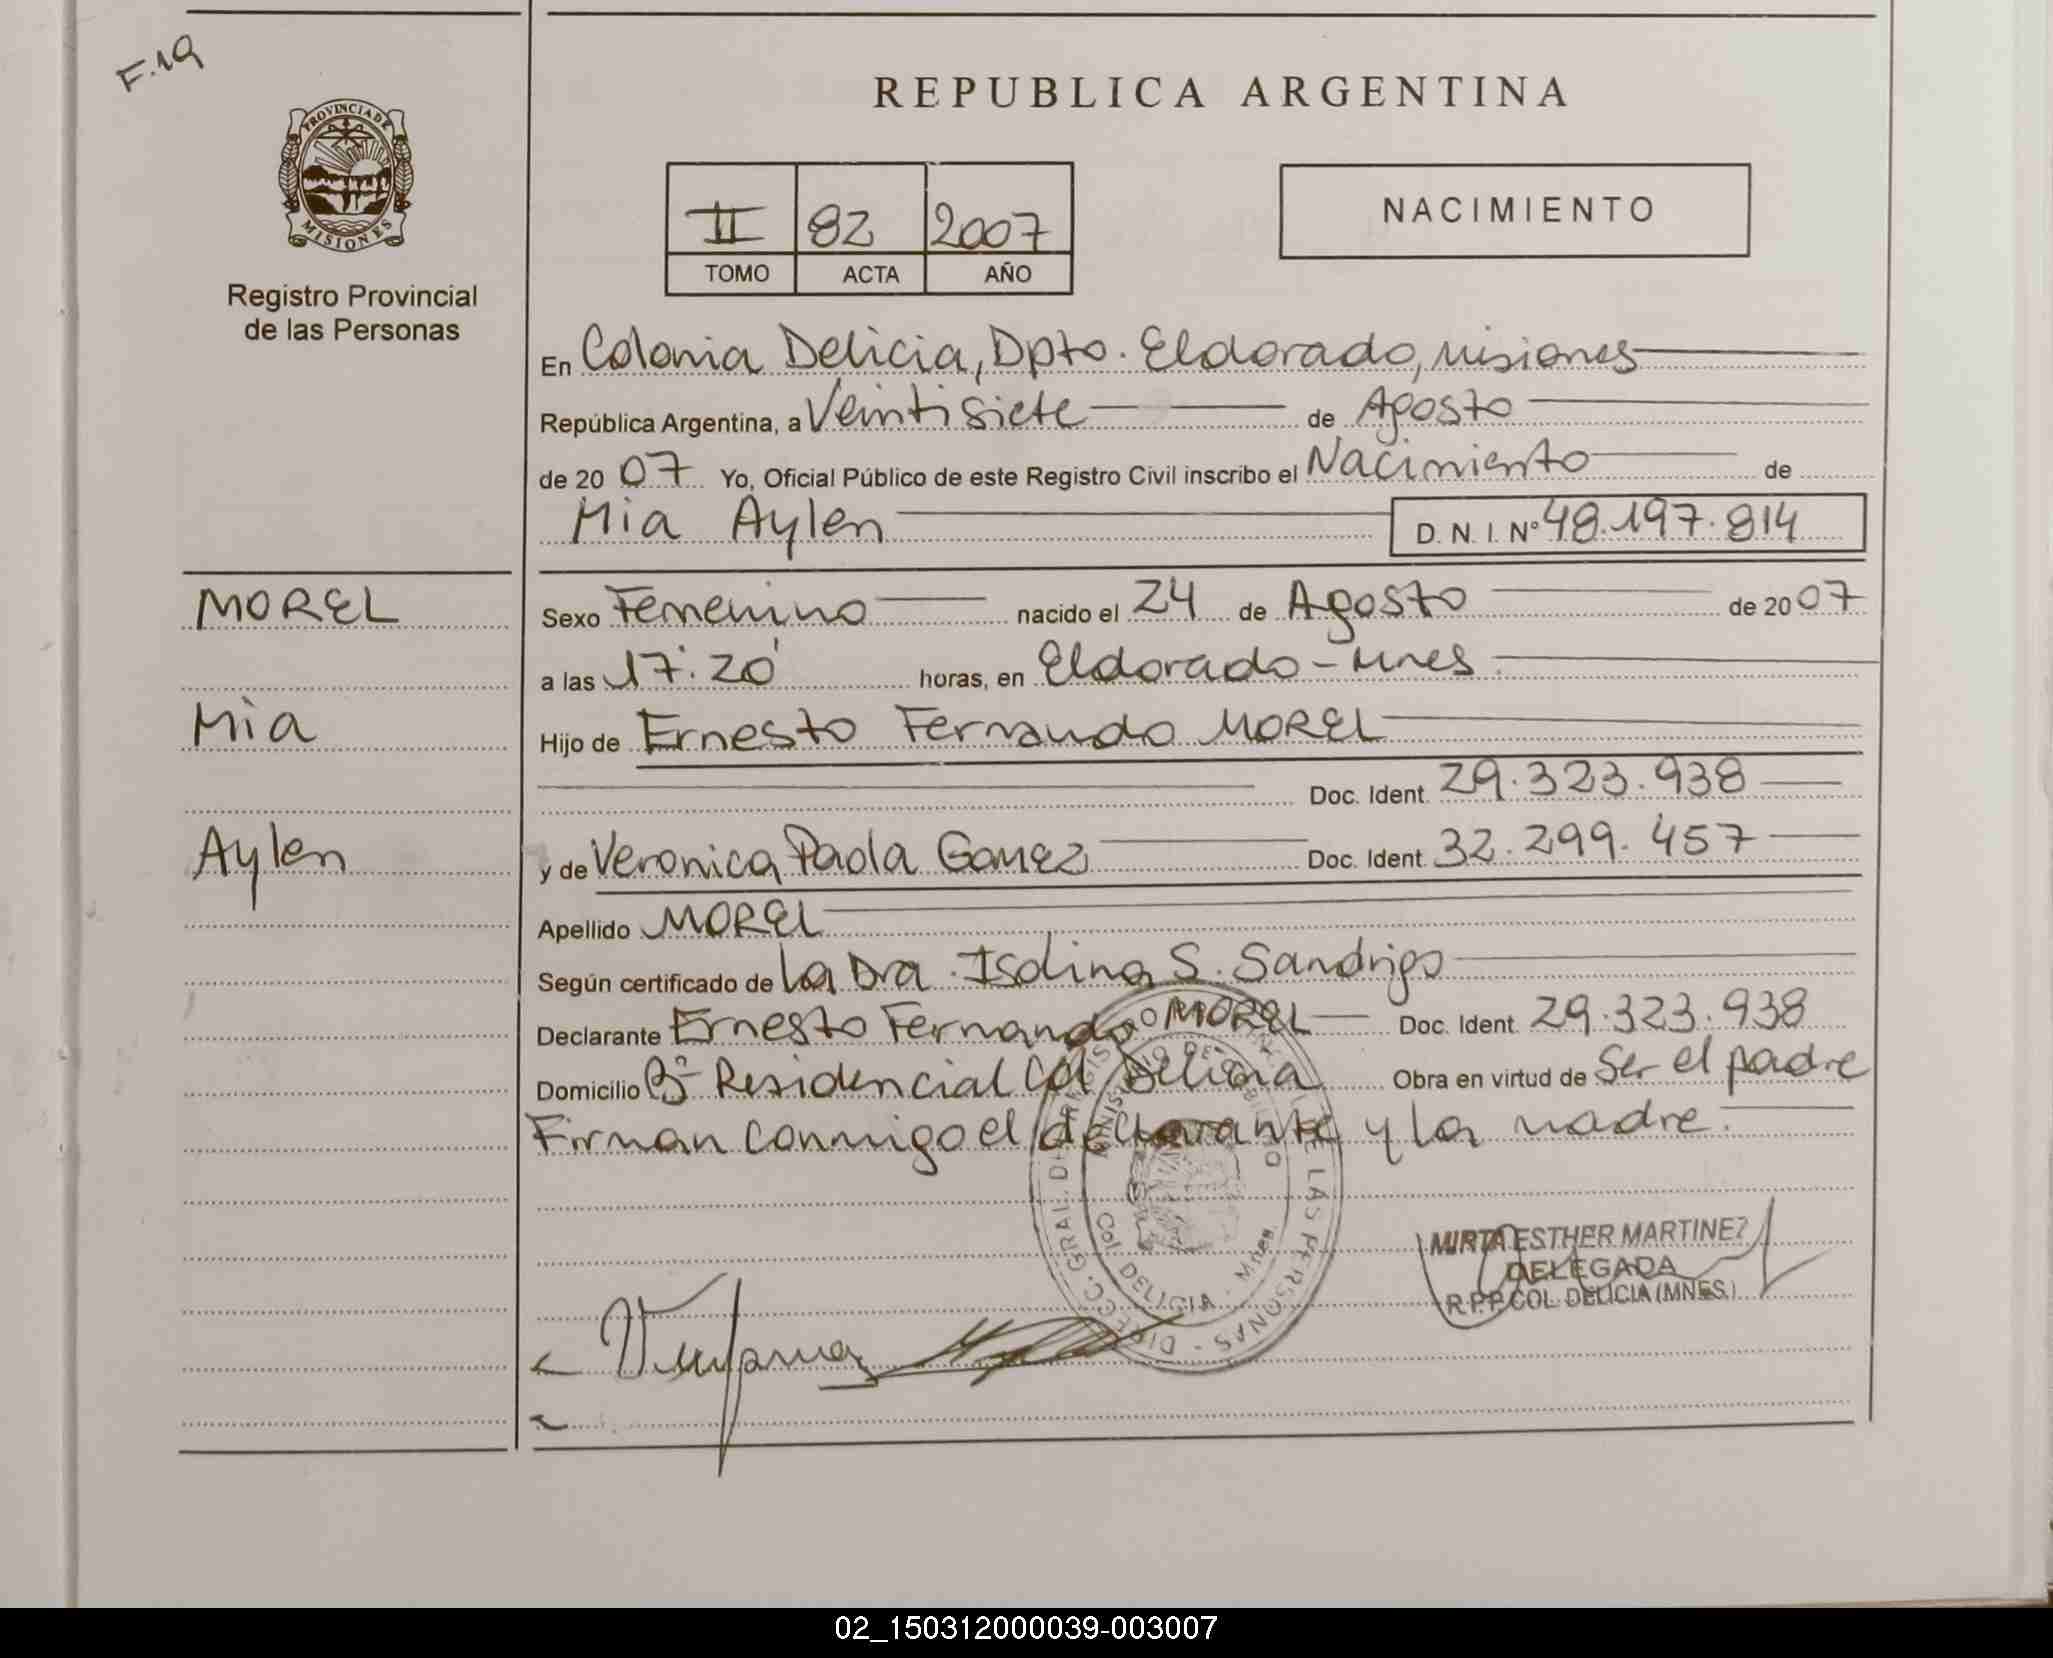 F.19
REPUBLICA ARGENTINA
PROVINCIA DE
MISIONES
Registro Provincial
de las Personas
II 82 2007
TOMO ACTA AÑO
NACIMIENTO
En Colonia Delicia, Dpto. Eldorado, Misiones
República Argentina, a Veintisiete de Agosto
de 20 07 Yo, Oficial Público de este Registro Civil inscribo el Nacimiento de
Mia Aylen D. N. I. Nº 48.197.814
MOREL
Sexo Femenino nacido el 24 de Agosto de 20 07
a las 17:20 horas, en Eldorado - Mnes
Mia
Hijo de Ernesto Fernando MOREL
Doc. Ident. 29.323.938
Aylen
y de Veronica Paola Gomez Doc. Ident. 32.299.457
Apellido MOREL
Según certificado de la Dra. Isolina S. Sandrigo
Declarante Ernesto Fernando MOREL Doc. Ident. 29.323.938
Domicilio Bº Residencial Col Delicia Obra en virtud de Ser el padre
Firman conmigo el declarante y la madre.
DE LAS PERSONAS - DIRECC. GRAL.
COL DELICIA - Mnes
MIRTA ESTHER MARTINEZ
DELEGADA
R.P.P. COL. DELICIA (MNES.)
02_150312000039-003007